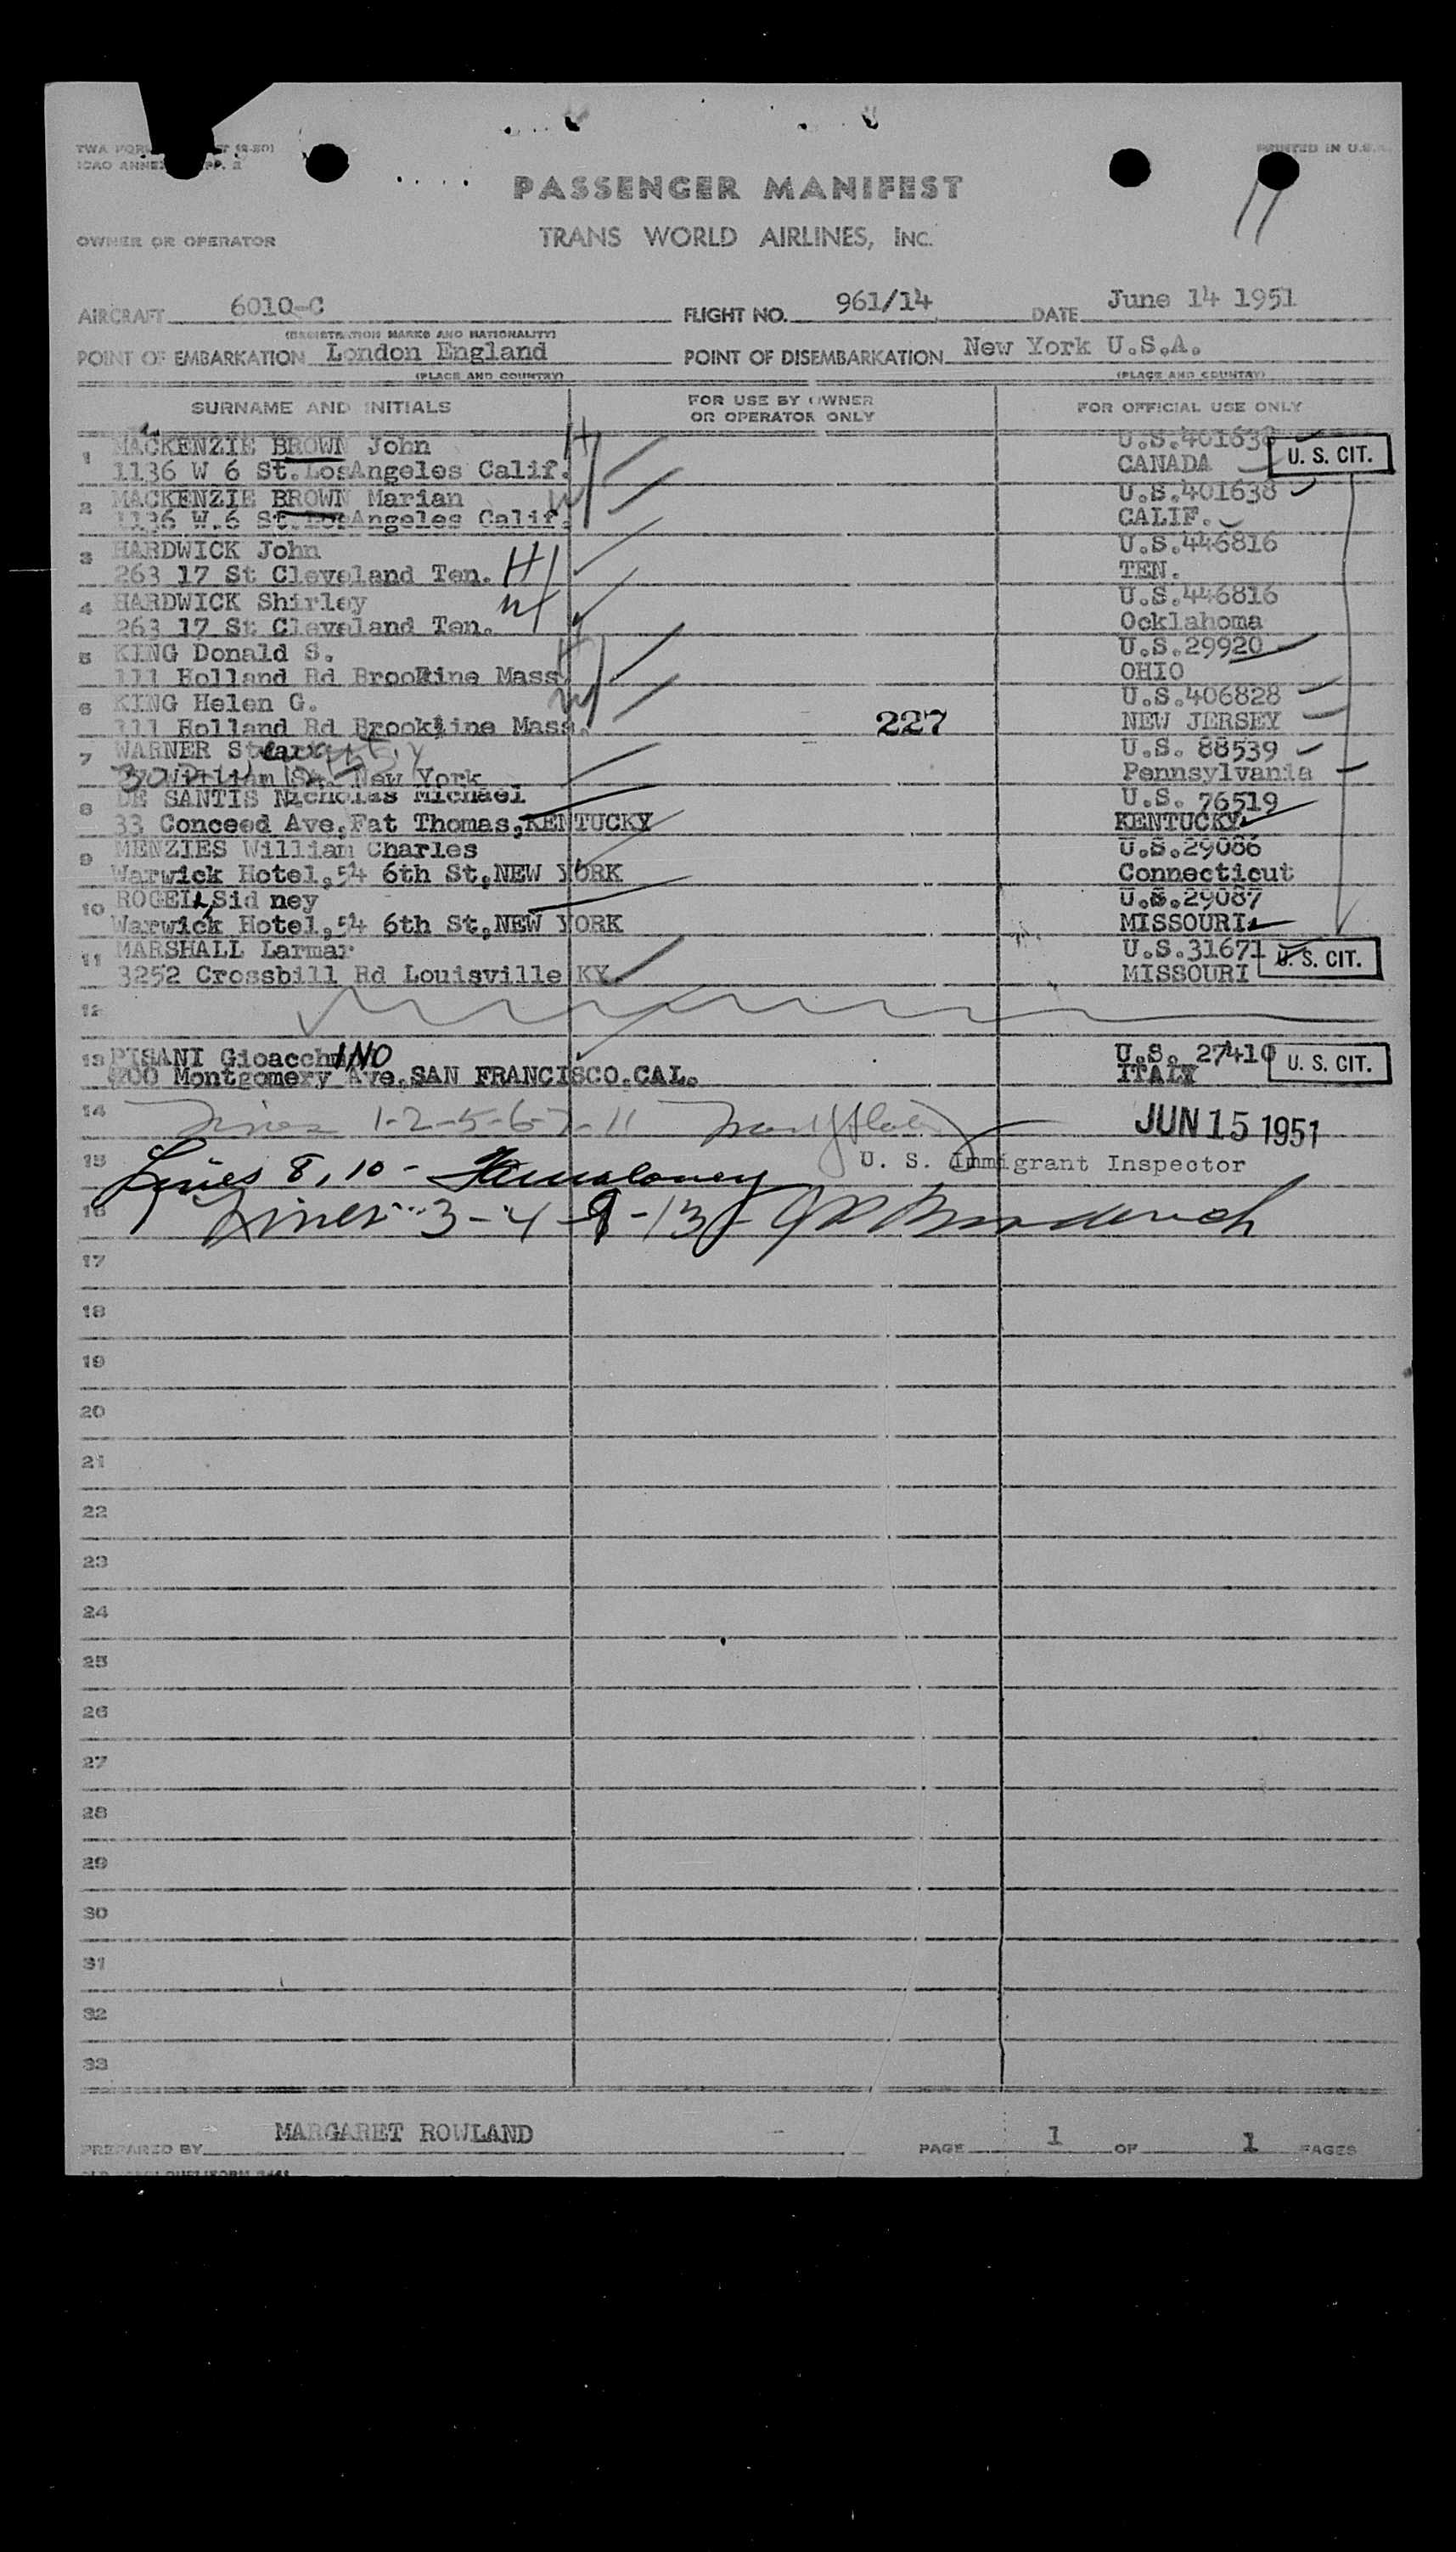 PRINTED IN U.S.A.
PASSENGER MANIFEST
11
OWNER OR OPERATOR
TRANS WORLD AIRLINES, INC.
AIRCRAFT 6010-C FLIGHT NO. 961/14 DATE June 14 1951
(REGISTRATION MARKS AND NATIONALITY)
POINT OF EMBARKATION London England POINT OF DISEMBARKATION New York U.S.A.
(PLACE AND COUNTRY) (PLACE AND COUNTRY)
SURNAME AND INITIALS FOR USE BY OWNER OR OPERATOR ONLY FOR OFFICIAL USE ONLY
1 MACKENZIE BROWN John H U.S.401638
1136 W 6 St.LosAngeles Calif. CANADA U. S. CIT.
2 MACKENZIE BROWN Marian W U.S.401638
1136 W.6 St.LosAngeles Calif. CALIF.
3 HARDWICK John H U.S.446816
263 17 St Cleveland Ten. TEN.
4 HARDWICK Shirley W U.S.446816
263 17 St Cleveland Ten. Ocklahoma
5 KING Donald S. H U.S.29920
111 Holland Rd Brookline Mass OHIO
6 KING Helen G. W U.S.406828
111 Holland Rd Brookline Mass. 227 NEW JERSEY
7 WARNER U.S. 88539
New York Pennsylvania
8 DE SANTIS Nicholas Michael U.S. 76519
33 Conceed Ave,Fat Thomas,KENTUCKY KENTUCKY
9 MENZIES William Charles U.S.29086
Warwick Hotel,54 6th St,NEW YORK Connecticut
10 ROGELL Sid ney U.S.29087
Warwick Hotel,54 6th St,NEW YORK MISSOURI
11 MARSHALL Larmar U.S.31671 U. S. CIT.
3252 Crossbill Rd Louisville KY. MISSOURI
12
13 PISANI GioacchINO U.S. 27410 U. S. CIT.
Montgomery Ave.SAN FRANCISCO.CAL. ITALY
14 Lines 1-2-5-6-7-11 JUN 15 1951
15 Lines 8, 10 - U. S. Immigrant Inspector
16 Lines 3-4-9-13-
17
18
19
20
21
22
23
24
25
26
27
28
29
30
31
32
33
PREPARED BY MARGARET ROWLAND PAGE 1 OF 1 PAGES